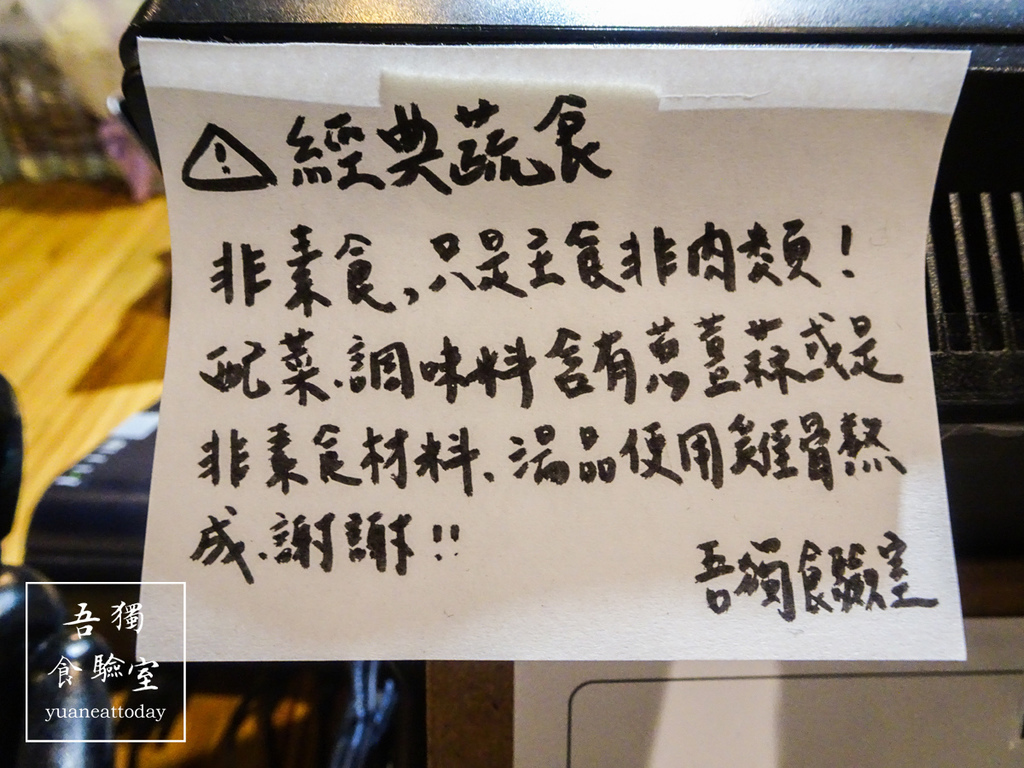 ⚠ 經典蔬食
非素食,只是主食非肉類!
配菜、調味料含有蔥薑蒜或是
非素食材料、湯品使用雞骨熬
成、謝謝!!
吾獨食驗室
吾獨
食驗室
yuaneattoday